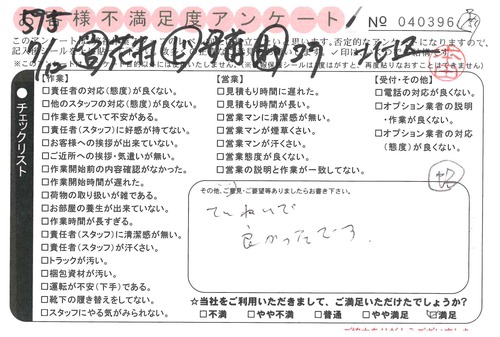 お客様不満足度アンケート
No 040396
【作業】
□責任者(態度)が良くない。
□他のスタッフの対応(態度)が良くない。
□作業を見ていて不安がある。
□責任者(スタッフ)に好感が持てない。
□お客様への挨拶が出来ていない。
□ご近所への挨拶・気遣いが無い。
□作業開始前の内容確認がなかった。
□作業開始時間が遅れた。
□荷物の取り扱いが雑である。
□お部屋の養生が出来ていない。
□作業時間が長すぎる。
□責任者(スタッフ)に清潔感が無い。
□責任者(スタッフ)が汗くさい。
□トラックが汚い。
□梱包資材が汚い。
□運転が不安(下手)である。
□靴下の履き替えをしてない。
□スタッフにやる気がみられない。
【営業】
□見積もり時間に遅れた。
□見積もり時間が長い。
□営業マンに清潔感が無い。
□営業マンが煙草くさい。
□営業マンが汗くさい。
□営業態度が良くない。
□営業の説明と作業が一致してない。
【受付・その他】
□電話の対応が良くない。
□オプション業者の説明
・作業が良くない。
□オプション業者の対応
(態度)が良くない。
チェックリスト
その他、ご意見・ご要望等ありましたらお書き下さい。
ていねいで
良かったです。
☆当社をご利用いただきまして、ご満足いただけたでしょうか?
□不満 □やや不満 □普通 □やや満足 ☑満足
ご協力ありがとうございました